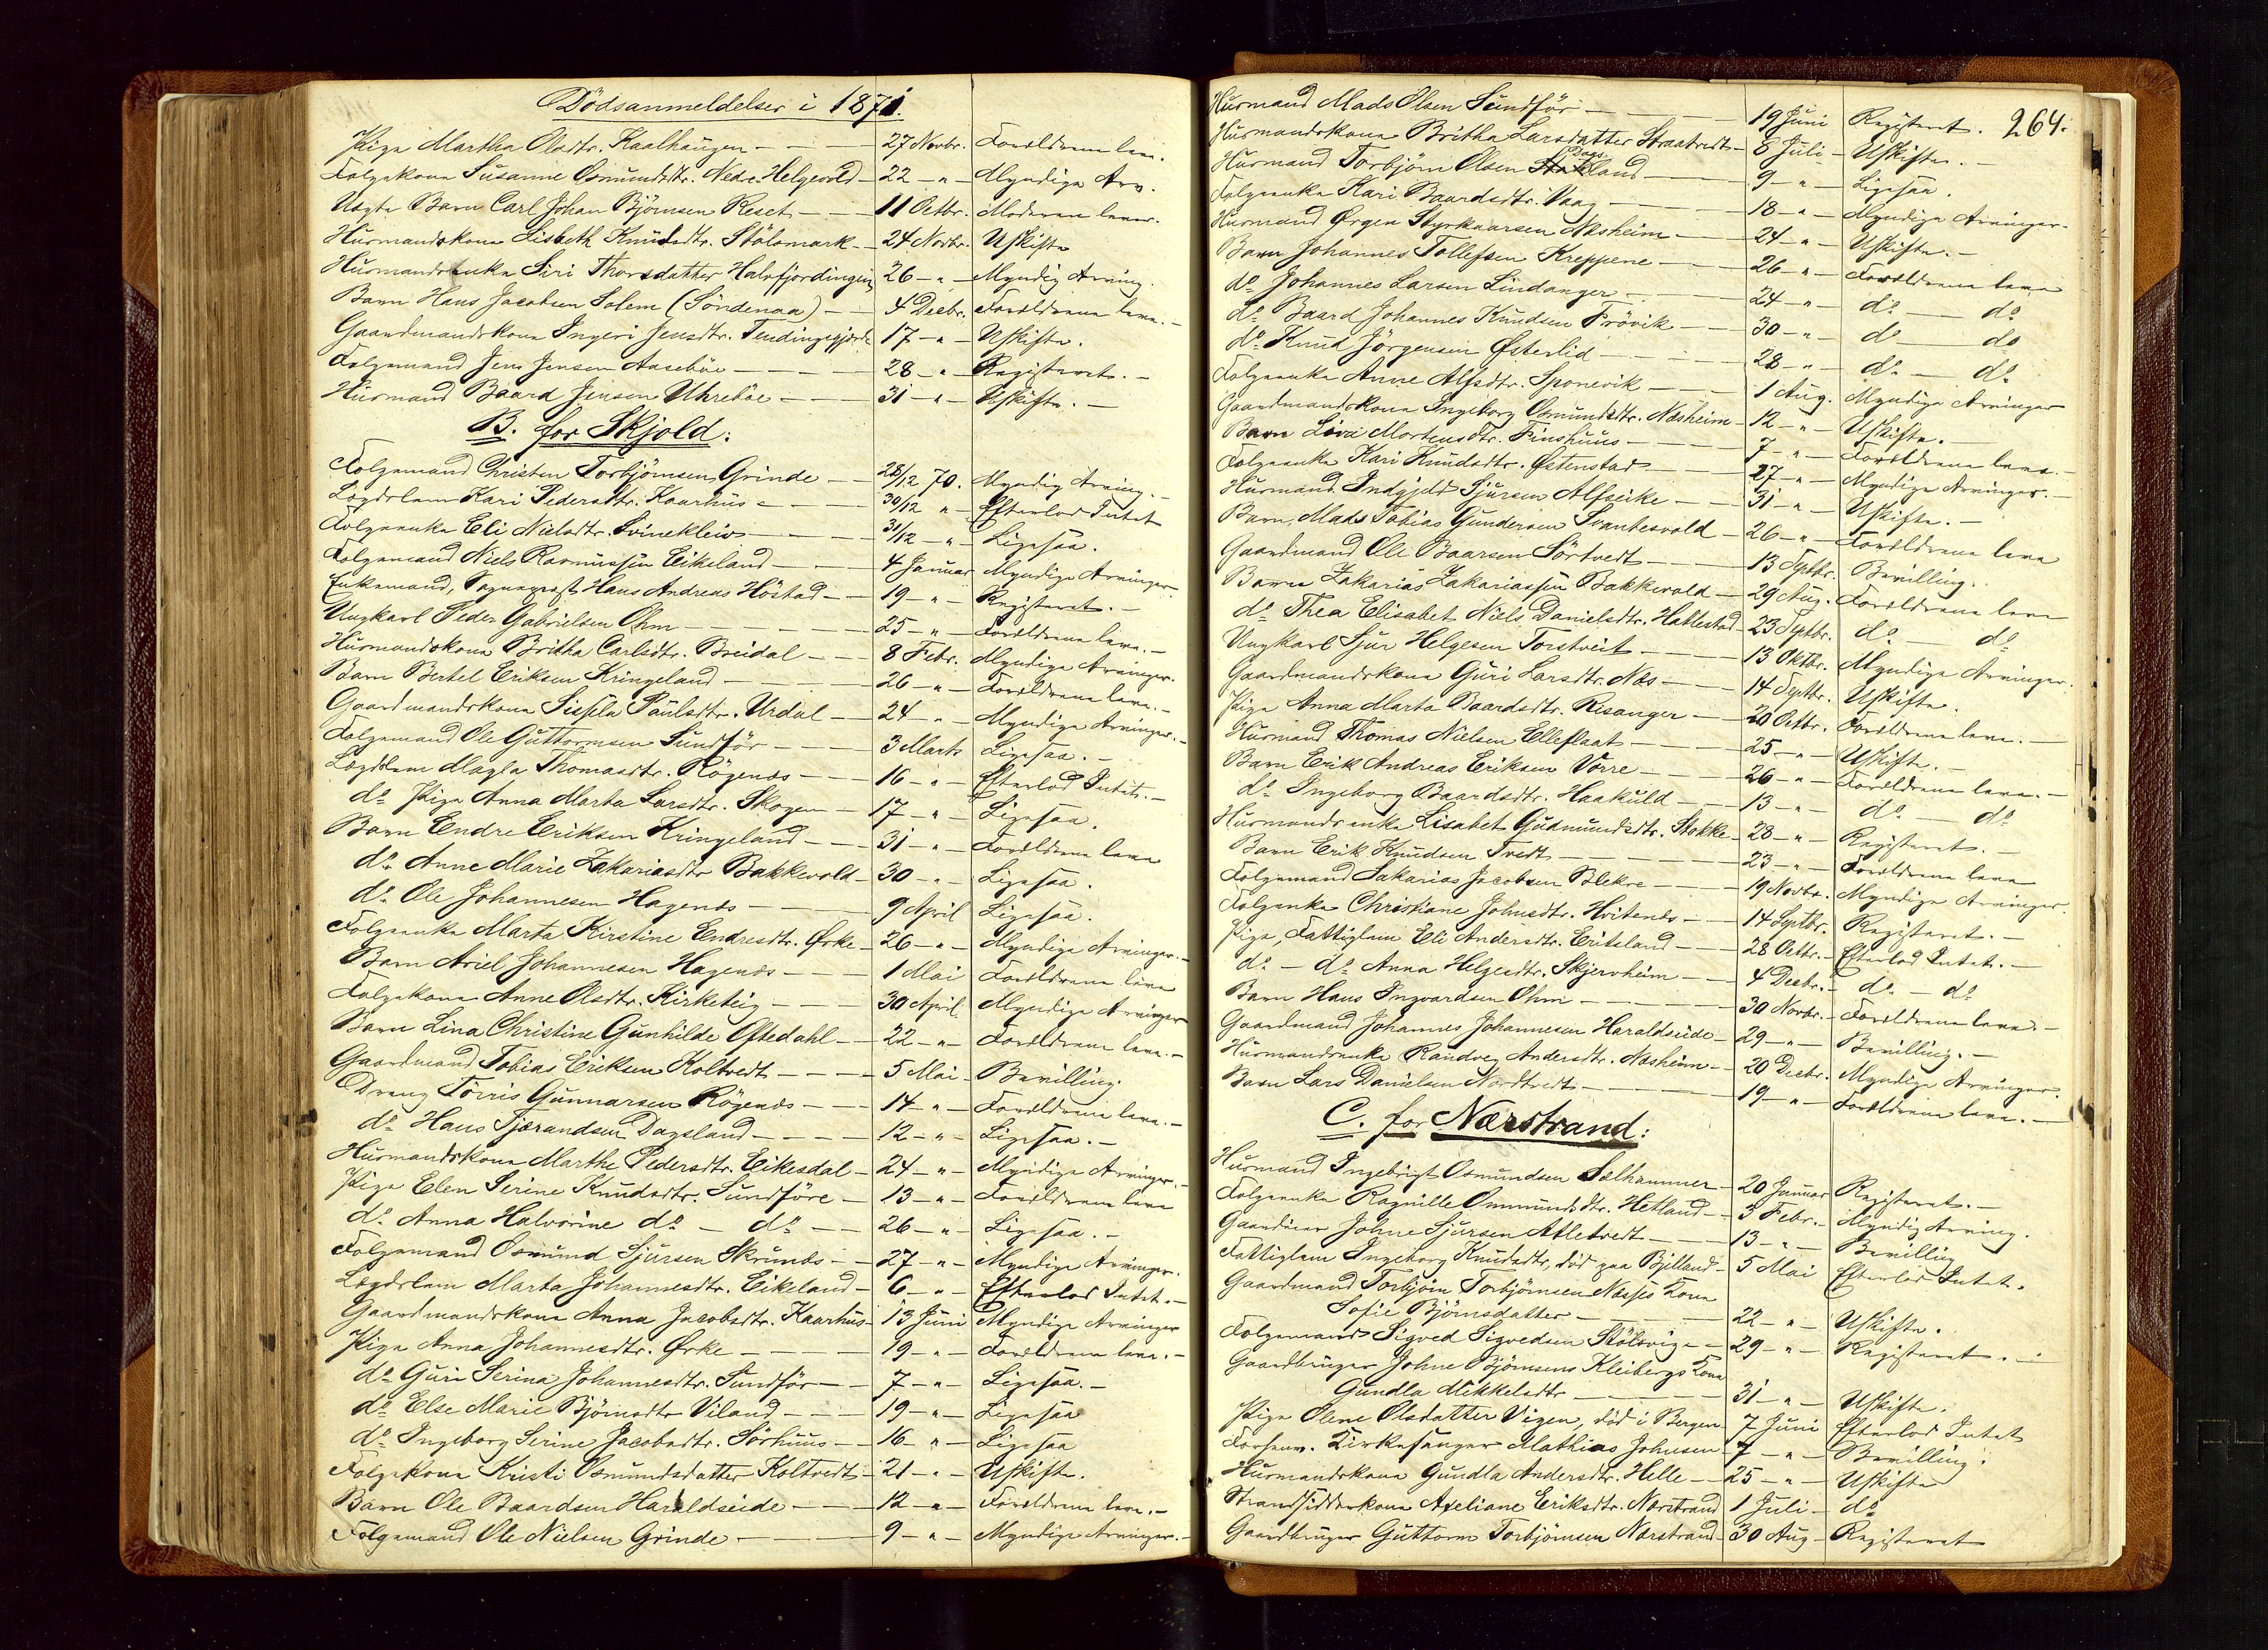 Dödsanmeldelser i 1871.
Pige Martha Olsdtr. Kaalhaugen - 27 Novbr. Forældrene leve.
Folgekone Susanne Osmundsdtr. Nedre Helgevold - 22 - " - Myndige Arv.
Uægte Barn Carl Johan Björnsen Reset - 11 Octbr. Moderen lever.
Husmandskone Lisbeth Knudsdtr. Stölsmark - 24 Novbr. Uskifte
Husmandsenke Siri Thorsdatter Halsfjordingen 26 - " - Myndig Arving.
Barn Hans Jacobsen Solem (Söndenaa) - 4 Decbr. Forældrene leve. -
Gaardmandskone Ingeri Jensdtr. Tendingsgjerde 17 - " - Uskifte.
Folgemand Jens Jensen Aaseböe - 28 - " - Registeret. -
Husmand Baard Jensen Uhreböe - 31 - " - Uskifte. -
B. for Skjold:
Folgemand Christen Torbjörnsen Grinde - 28/12 70. Myndig Arving. -
Lægdslem Kari Pedersdtr. Kaarhus - 30/12 " - Efterlod Intet
Folgeenke Eli Nielsdtr. Svinekleiv - 31/12 - " - Ligesaa.
Folgemand Niels Rasmussen Eikeland - 4 Januar Myndige Arvinger
Enkemand, Sogneprest Hans Andreas Höstad - 19 - " - Registeret. -
Ungkarl Peder Gabrielsen Ohm - 25 - " - Forældrene leve. -
Husmandskone Britha Carlsdtr. Breidal - 8 Febr. Myndige Arvinger.
Barn Bertel Eriksen Kringeland - 26 - " - Forældrene leve. -
Gaardmandskone Sissela Paulsdtr. Urdal - 24 - " - Myndige Arvinger. -
Folgemand Ole Guttormsen Sundför - 3 Marts Ligesaa. -
Lægdslem Magla Thomasdtr. Rögenæs - 16 - " - Efterlod Intet. -
do Pige Anna Marta Larsdtr. Skogen - 17 - " - Ligesaa.
Barn Endre Eriksen Kringeland - 31 - " - Forældrene leve
do Anne Marie Zakariasdtr Bakkevold - 30 - " - Ligesaa.
do Ole Johannesen Hagenæs - 9 April Ligesaa.
Folgeenke Marta Kirstine Endresdtr. Örke - 26 - " - Myndige Arvinger. -
Barn Ariel Johannesen Hagenæs - 1 Mai Forældrene leve
Folgekone Anne Olsdtr. Kirketeig - 30 April Myndige Arvinger
Barn Lina Christine Gunhilde Oftedahl - 22 - " - Forældrene leve. -
Gaardmand Tobias Eriksen Koltvedt - 5 Mai - Bevilling.
Dreng Törris Gunnarsen Rögenæs - 14 - " - Forældrene leve. -
do Hans Tjærandsen Dagsland - 12 - " - Ligesaa. -
Husmandskone Marthe Pedersdtr. Eikesdal - 24 - " - Myndige Arvinger. -
Pige Elen Serine Knudsdtr. Sundföre - 13 - " - Forældrene leve
do Anna Halvorine do - do - 26 - " - Ligesaa. -
Folgemand Osmund Sjursen Skrunæs - 27 - " - Myndige Arvinger.
Lægdslem Marta Johannesdtr. Eikeland - 6 - " - Efterlod Intet. -
Gaardmandskone Anna Jacobsdtr. Kaarhus - 13 Juni Myndige Arvinger
Pige Anna Johannesdtr. Örke - 19 - " - Forældrene leve. -
do Guri Serina Johannesdtr. Sundför - 7 - " - Ligesaa. -
do Else Marie Björnsdtr Viland - 19 - " - Ligesaa
do Ingeborg Serine Jacobsdtr. Sörhuus - 16 - " - Ligesaa
Folgekone Kristi Osmundsdatter Koltvedt - 21 - " - Uskifte.
Barn Ole Baardsen Haraldseide - 12 - " - Forældrene leve. -
Folgemand Ole Nielsen Grinde - 9 - " - Myndige Arvinger. -
264.
Husmand Mads Olsen Sundför - 19 Juni Registeret.
Husmandskone Britha Larsdatter Straatvedt - 8 Juli - Uskifte. -
Husmand Torbjörn Olsen Dagsland - 9 - " - Ligesaa.
Folgeenke Kari Baardsdtr. Vaag - 18 - " - Myndige Arvinger.
Husmand Örgen Styrkaarsen Næsheim - 24 - " - Uskifte. -
Barn Johannes Tollefsen Kreppene - 26 - " - Forældrene leve
do Johannes Larsen Lindanger - 24 - " - do - do
do Baard Johannes Knudsen Frövik - 30 - " - do - do
do Knud Jörgensen Østerlid - 28 - " - do - do
Folgeenke Anne Alfsdtr. Sponevik - 1 Aug. Myndige Arvinger
Gaardmandskone Ingeborg Osmundsdtr. Næsheim - 12 - " - Uskifte.
Barn Lovi Mortensdtr. Finshuus - 7 - " - Forældrene leve. -
Folgeenke Kari Knudsdtr. Østenstad - 27 - " - Myndige Arvinger. -
Husmand Indgjeld Sjursen Alfseike - 31 - " - Uskifte. -
Barn Mads Tobias Gundersen Svantesvold - 26 - " - Forældrene leve
Gaardmand Ole Baarsen Sörtvedt - 13 Septbr. Bevilling.
Barn Zakarias Zakariassen Bakkevold - 29 Aug. Forældrene leve
do Thea Elisabet Niels Danielsdtr. Hatlestad - 23 Septbr. do - do
Ungkarl Sjur Helgesen Torstveit - 13 Oktbr. Myndige Arvinger.
Gaardmandskone Guri Larsdtr. Næs - 14 Septbr. Uskifte.
Pige Anna Marta Baardsdtr. Risanger - 20 Octbr. Forældrene leve. -
Husmand Thomas Nielsen Elleflaat - 25 - " - Uskifte. -
Barn Erik Andreas Eriksen Vorre - 26 - " - Forældrene leve. -
do Ingeborg Baardsdtr. Haakuld - 13 - " - do - do
Husmandsenke Lisabet Gudmundsdtr. Stokke - 28 - " - Registeret. -
Barn Erik Knudsen Tvedt - 23 - " - Forældrene leve
Folgemand Sakarias Jacobsen Blekre - 19 Novbr. Myndige Arvinger.
Folgeenke Christiane Johnsdtr. Hvitenæs - 14 Septbr. Registeret. -
Pige, Fattiglem Eli Andersdtr. Eriteland - 28 Octbr. - Efterlod Intet. -
do - do Anna Helgesdtr. Skjervheim - 4 Decbr. - do - do
Barn Hans Ingvardsen Ohm - 30 Novbr. - Forældrene leve. -
Gaardmand Johannes Johannesen Haraldseide - 29 - " - Bevilling. -
Husmandsenke Randvei Andersdtr. Næsheim - 20 Decbr. Myndige Arvinger.
Barn Lars Danielsen Nordtvedt - 19 - " - Forældrene leve. -
C. for Nærstrand:
Husmand Ingebrigt Osmundsen Sælhammer - 20 Januar Registeret. -
Folgeenke Ragnille Ommundsdtr. Hetland - 3 Febr. - Myndig Arving.
Gaardmand Johne Sjursen Atletvedt - 13 - " - Bevilling
Fattiglem Ingeborg Knudsdtr, död paa Bjelland - 5 Mai Efterlod Intet.
Gaardmand Torbjörn Torbjörnsen Næsses Kone
Sofie Björnsdatter - 22 - " - Uskifte.
Folgemand Sigved Sigvedsen Stölsvig - 29 - " - Registeret. -
Gaardbruger Johne Björnsens Kleibergs Kone
Gundla Mikkelsdtr - 31 - " - Uskifte.
Pige Olene Olsdatter Vigen, död i Bergen 7 Juni Efterlod Intet
Forhenv. Kirkesanger Mathias Johnsen - 7 - " - Bevilling.
Husmandskone Gundla Andersdtr. Helle - 25 - " - Uskifte
Strandsidderkone Axeliane Eriksdtr. Nærstrand 1 Juli - do
Gaardbruger Guttorm Torbjörnsen Nærstrand - 30 Aug - Registeret